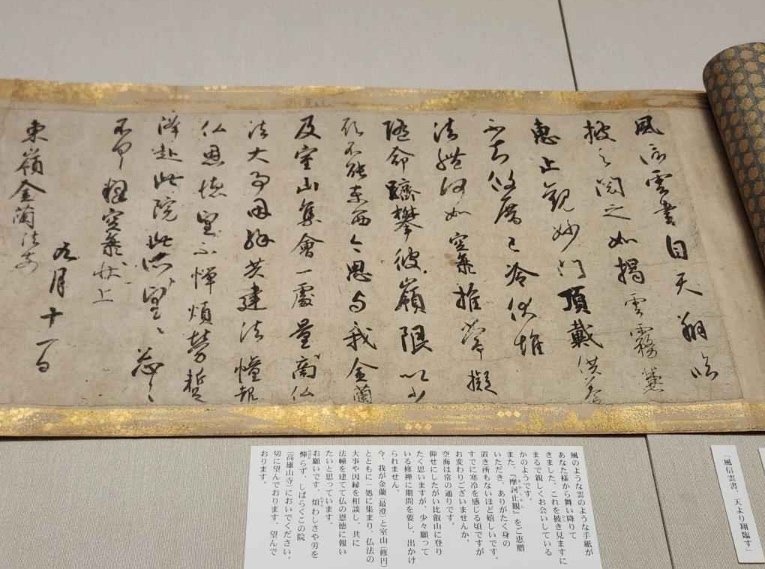 風信雲書自天翔臨
披之閲之如掲雲霧兼
恵止觀妙門頂戴供養
不知攸厝已冷伏惟
法體何如空海推常擬
隨命躋攀彼嶺限以少
願不能東西今思与我金蘭
及室山集會一處量商仏
法大事因縁共建法幢報
仏恩徳望不憚煩勞蹔
降赴此院此所望々忩々
不具釋空海状上
九月十一日
東嶺金蘭法前
「風信雲書　天より翔臨す」
風のような雲のような手紙が
あなた様から舞い降りて
きました。これを披き見ますに
まるで親しくお会いしている
かのようです。
また、『摩訶止観』をご恵贈
いただき、ありがたく身の
置き所もないほど嬉しいです。
すでに寒冷を感じる頃ですが
お変わりございませんか。
空海は常の通りです。
仰せにしたがい比叡山に登り
たく思いますが、少々願って
いる修禅に期間を要し、出かけ
られません。
今、我が金蘭（最澄）と室山（修円）
とともに一処に集まり、仏法の
大事や因縁を相談し、共に
法幢を建てて仏の恩徳に報い
たいと思っています。
お願いです、煩わしさや労を
憚らず、しばらくこの院
（高雄山寺）においでください。
切に望んでおります、望んで
おります。